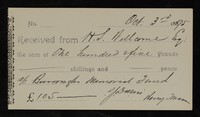 No. Oct. 3rd 1895
Received from H. S. Wellcome Esq
the sum of One hundred & five Pounds
shillings and pence
of Burroughs Memorial Fund
£105